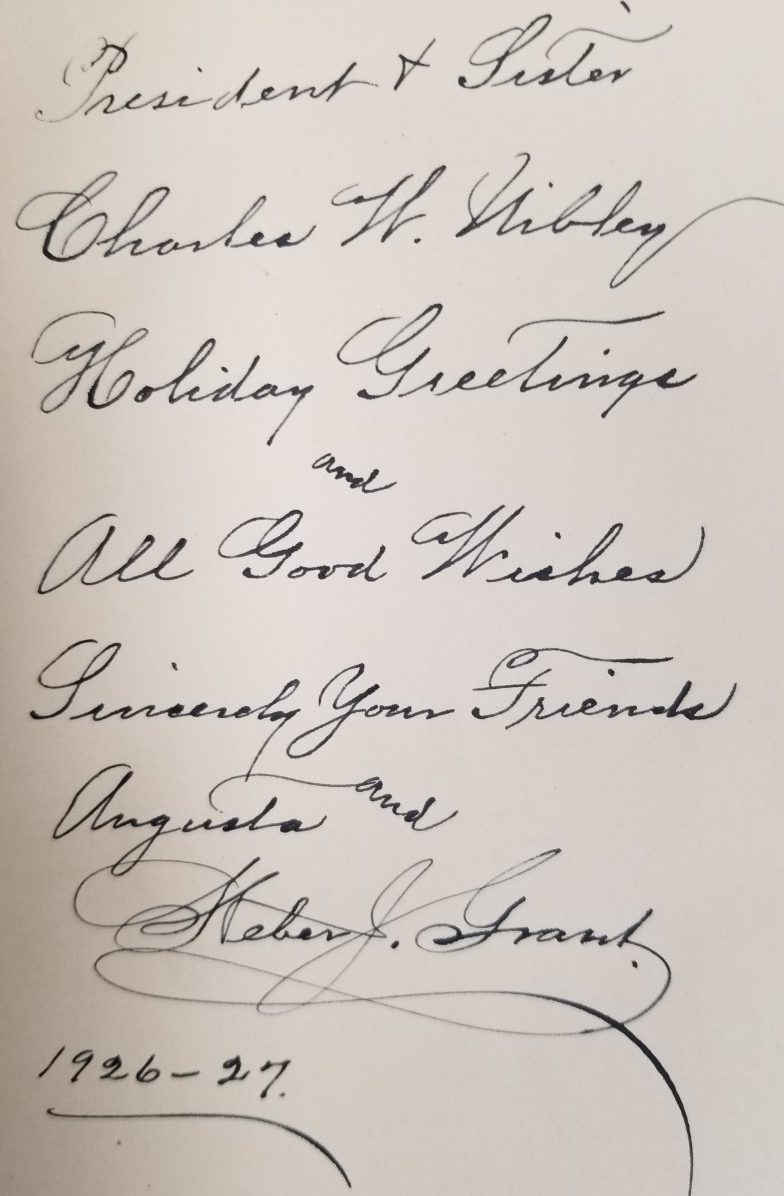 President & Sister
Charles W. Nibley
Holiday Greetings
and
All Good Wishes
Sincerely Your Friends
Augusta and
Heber J. Grant.
1926-27.